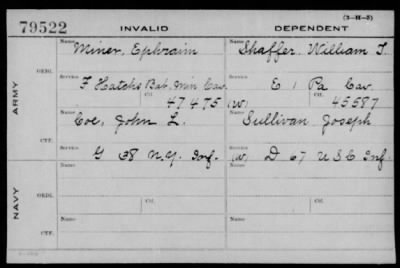 79522 INVALID DEPENDENT (3-H-5)
ARMY
ORIG.
Name Miner, Ephraim Name Shaffer, William T.
Service F Hatch's Bat. Min Cav. Service E 1 Pa Cav.
Ctf. 47475 (W) Ctf. 45587
CTF.
Name Coe, John L. Name Sullivan Joseph
Service G 38 N.Y. Inf. Service (W) D 67 U S C Inf.
NAVY
ORIG.
Name Ctf. Name Ctf.
Service Service
CTF.
Name Name
Service Service